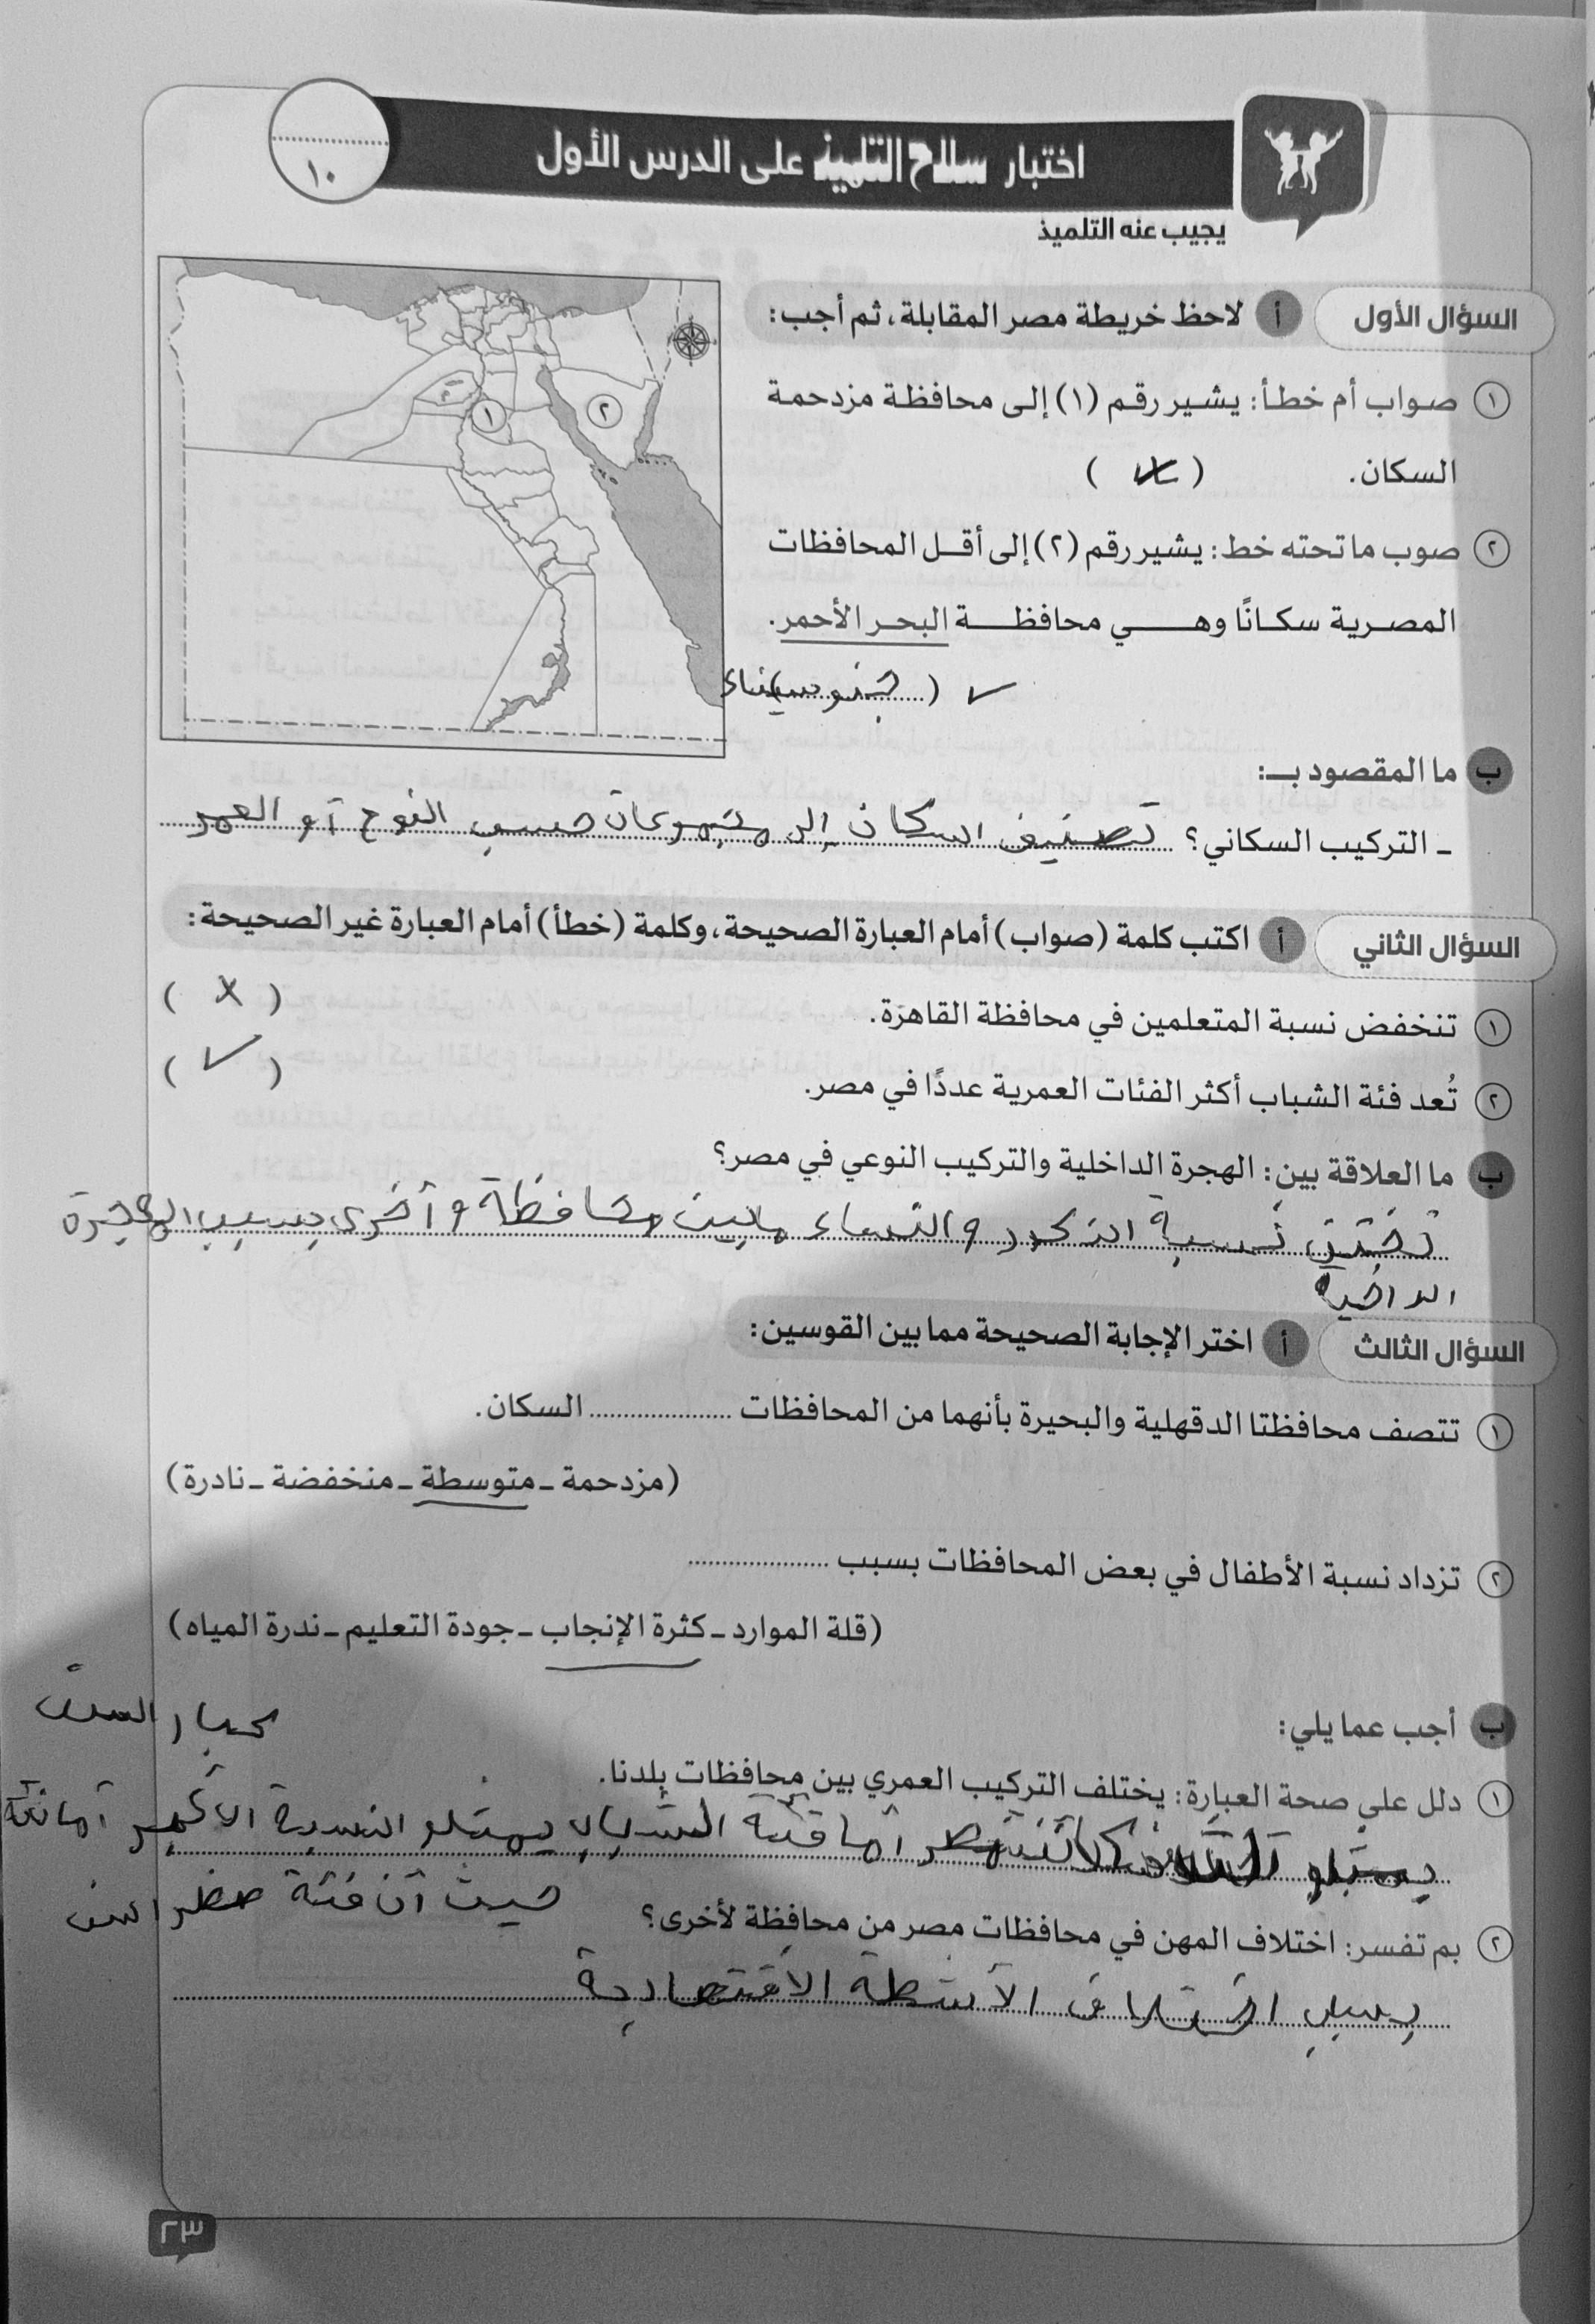 اختبار سلاح التلميذ على الدرس الأول
١٠
يجيب عنه التلميذ
السؤال الأول أ لاحظ خريطة مصر المقابلة، ثم أجب:
١ ٢
١ صواب أم خطأ: يشير رقم (١) إلى محافظة مزدحمة
السكان. ( )
٢ صوب ما تحته خط: يشير رقم (٢) إلى أقل المحافظات
المصرية سكانًا وهي محافظة البحر الأحمر.
✓ (جنوب سيناء)
ب ما المقصود بـ:
- التركيب السكاني؟ تصنيف السكان إلى مجموعات حسب النوع أو العمر
السؤال الثاني أ اكتب كلمة (صواب) أمام العبارة الصحيحة، وكلمة (خطأ) أمام العبارة غير الصحيحة:
١ تنخفض نسبة المتعلمين في محافظة القاهرة. (x)
٢ تُعد فئة الشباب أكثر الفئات العمرية عددًا في مصر. (✓)
ب ما العلاقة بين: الهجرة الداخلية والتركيب النوعي في مصر؟
نسبة الذكور والنساء مابين محافظة وأخرى بسبب الهجرة
السؤال الثالث أ اختر الإجابة الصحيحة مما بين القوسين:
١ تتصف محافظتا الدقهلية والبحيرة بأنهما من المحافظات .................... السكان.
(مزدحمة - متوسطة - منخفضة - نادرة)
٢ تزداد نسبة الأطفال في بعض المحافظات بسبب ....................
(قلة الموارد - كثرة الإنجاب - جودة التعليم - ندرة المياه)
ب أجب عما يلي:
كبار السن
١ دلل على صحة العبارة: يختلف التركيب العمري بين محافظات بلدنا.
أما فئة الشباب يمثلو النسبة الأكبر أما فئة
حيث أن فئة صغار السن
٢ بم تفسر: اختلاف المهن في محافظات مصر من محافظة لأخرى؟
بسبب اختلاف الأنشطة الاقتصادية
٢٣